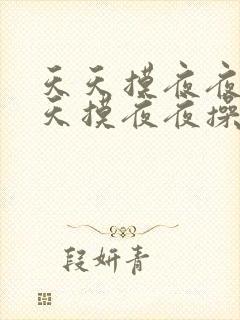 天天摸夜夜
天摸夜夜操
段妍青